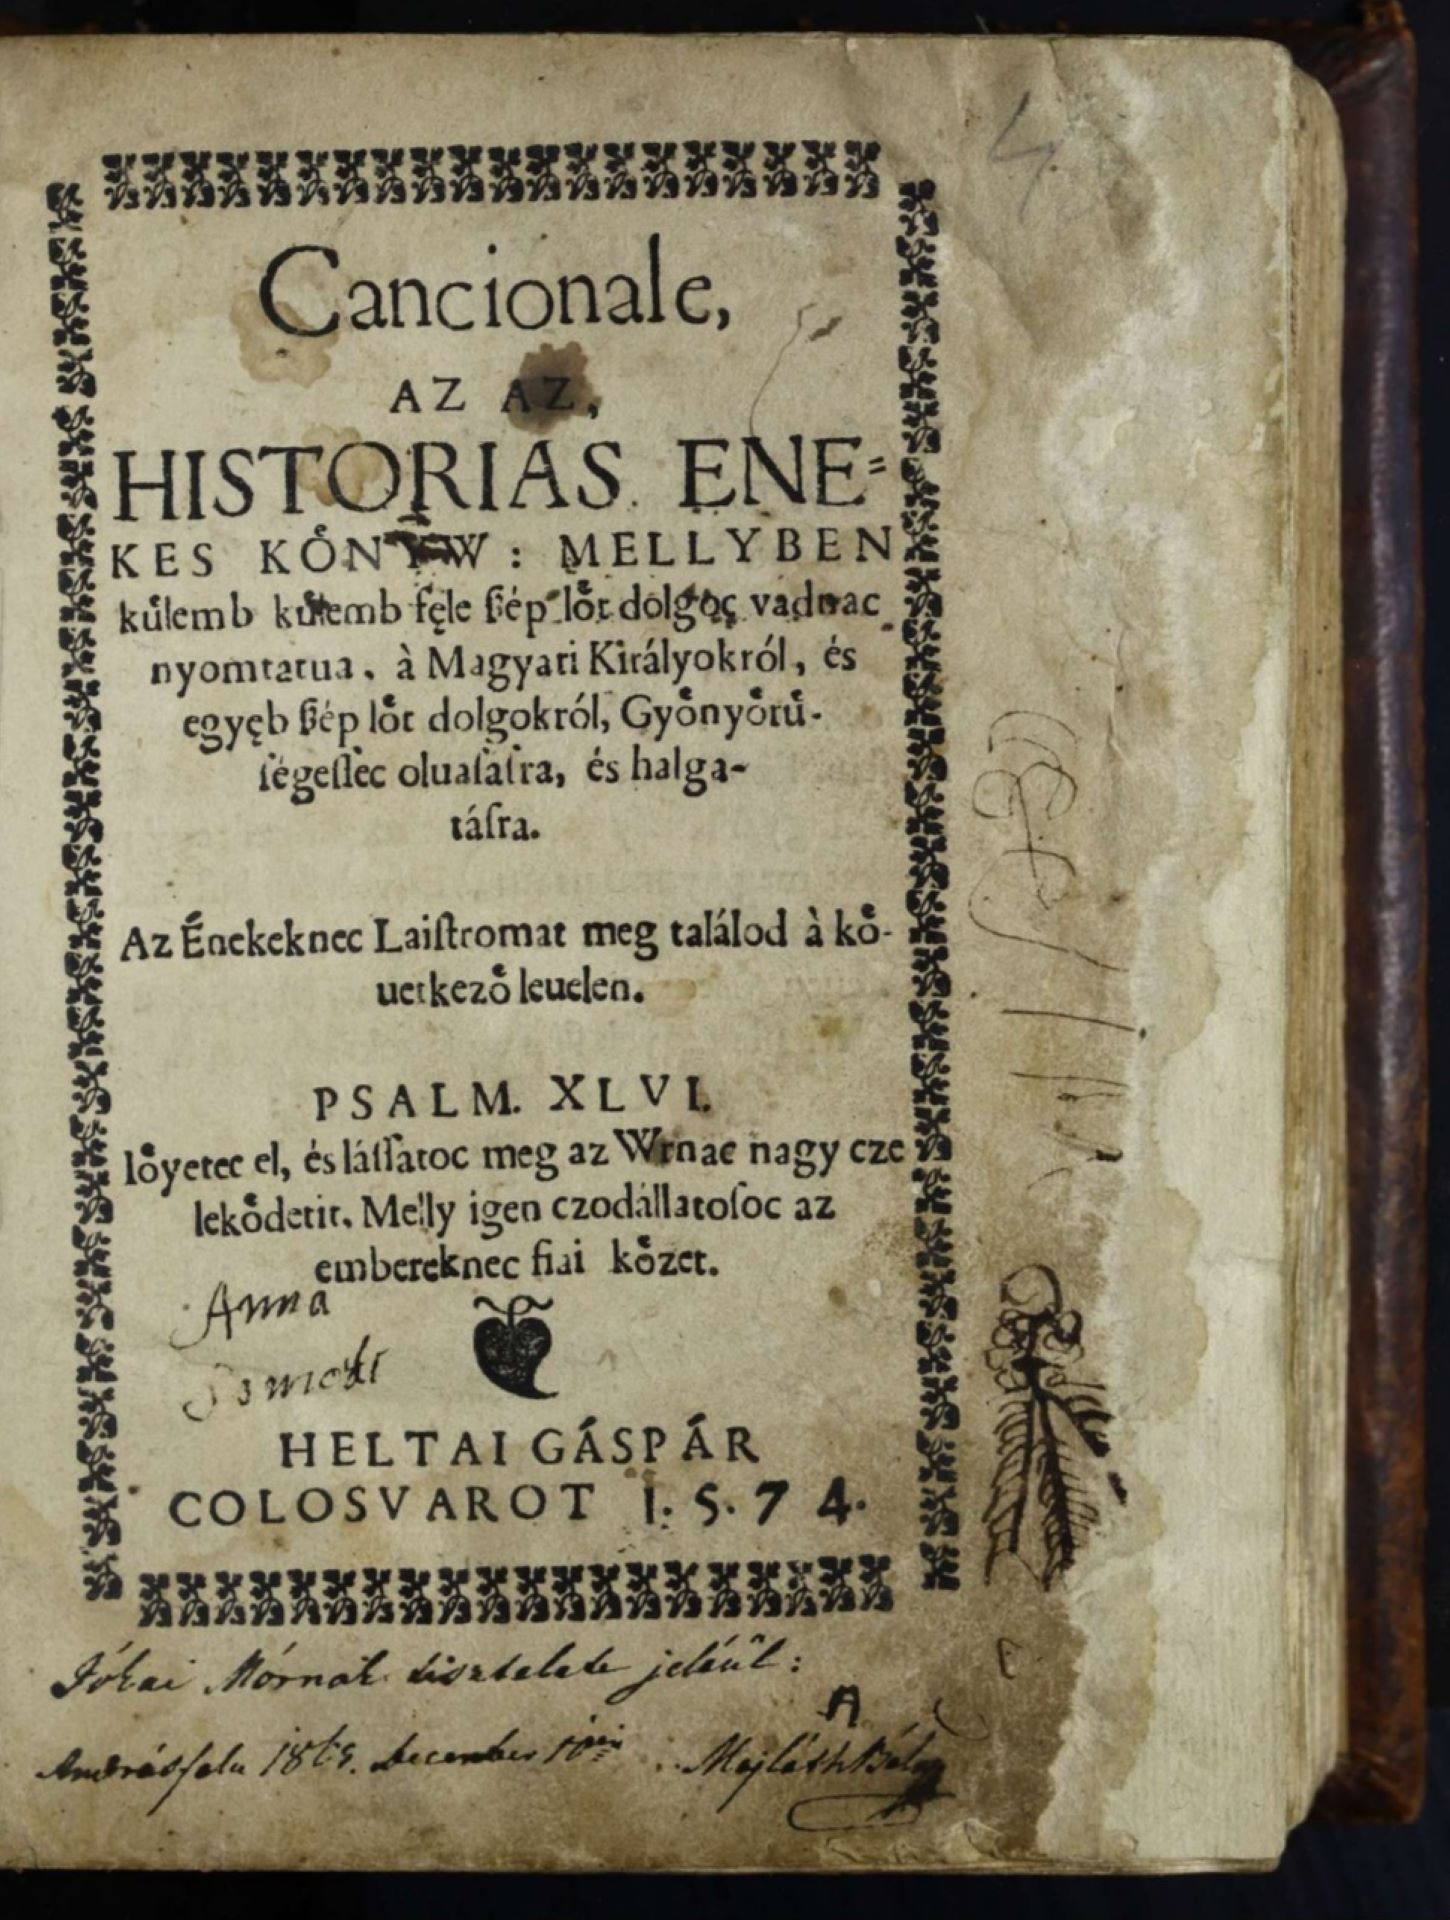 Cancionale,
AZ AZ,
HISTORIAS ENE-
KES KÖNYW: MELLYBEN
kuͤlemb kuͤlemb fęle ßép loͤt dolgoc vadnac
nyomtatua, à Magyari Királyokról, és
egyęb ßép loͤt dolgokról, Gyoͤnyoͤruͤ-
ſégeſſec oluaſaſra, és halga-
táſra.
Az Énekeknec Laiſtromat meg találod à koͤ-
uetkezoͤ leuelen.
PSALM. XLVI.
Ioͤyetec el, és láſſatoc meg az Wrnac nagy cze
lekoͤdetit. Melly igen czodállatoſoc az
embereknec fiai koͤzet.
Anna
HELTAI GÁSPÁR
COLOSVAROT 1.5.74.
Jókai Mórnak tisztelete jeléül:
Andrásfalu december Majláth Béla